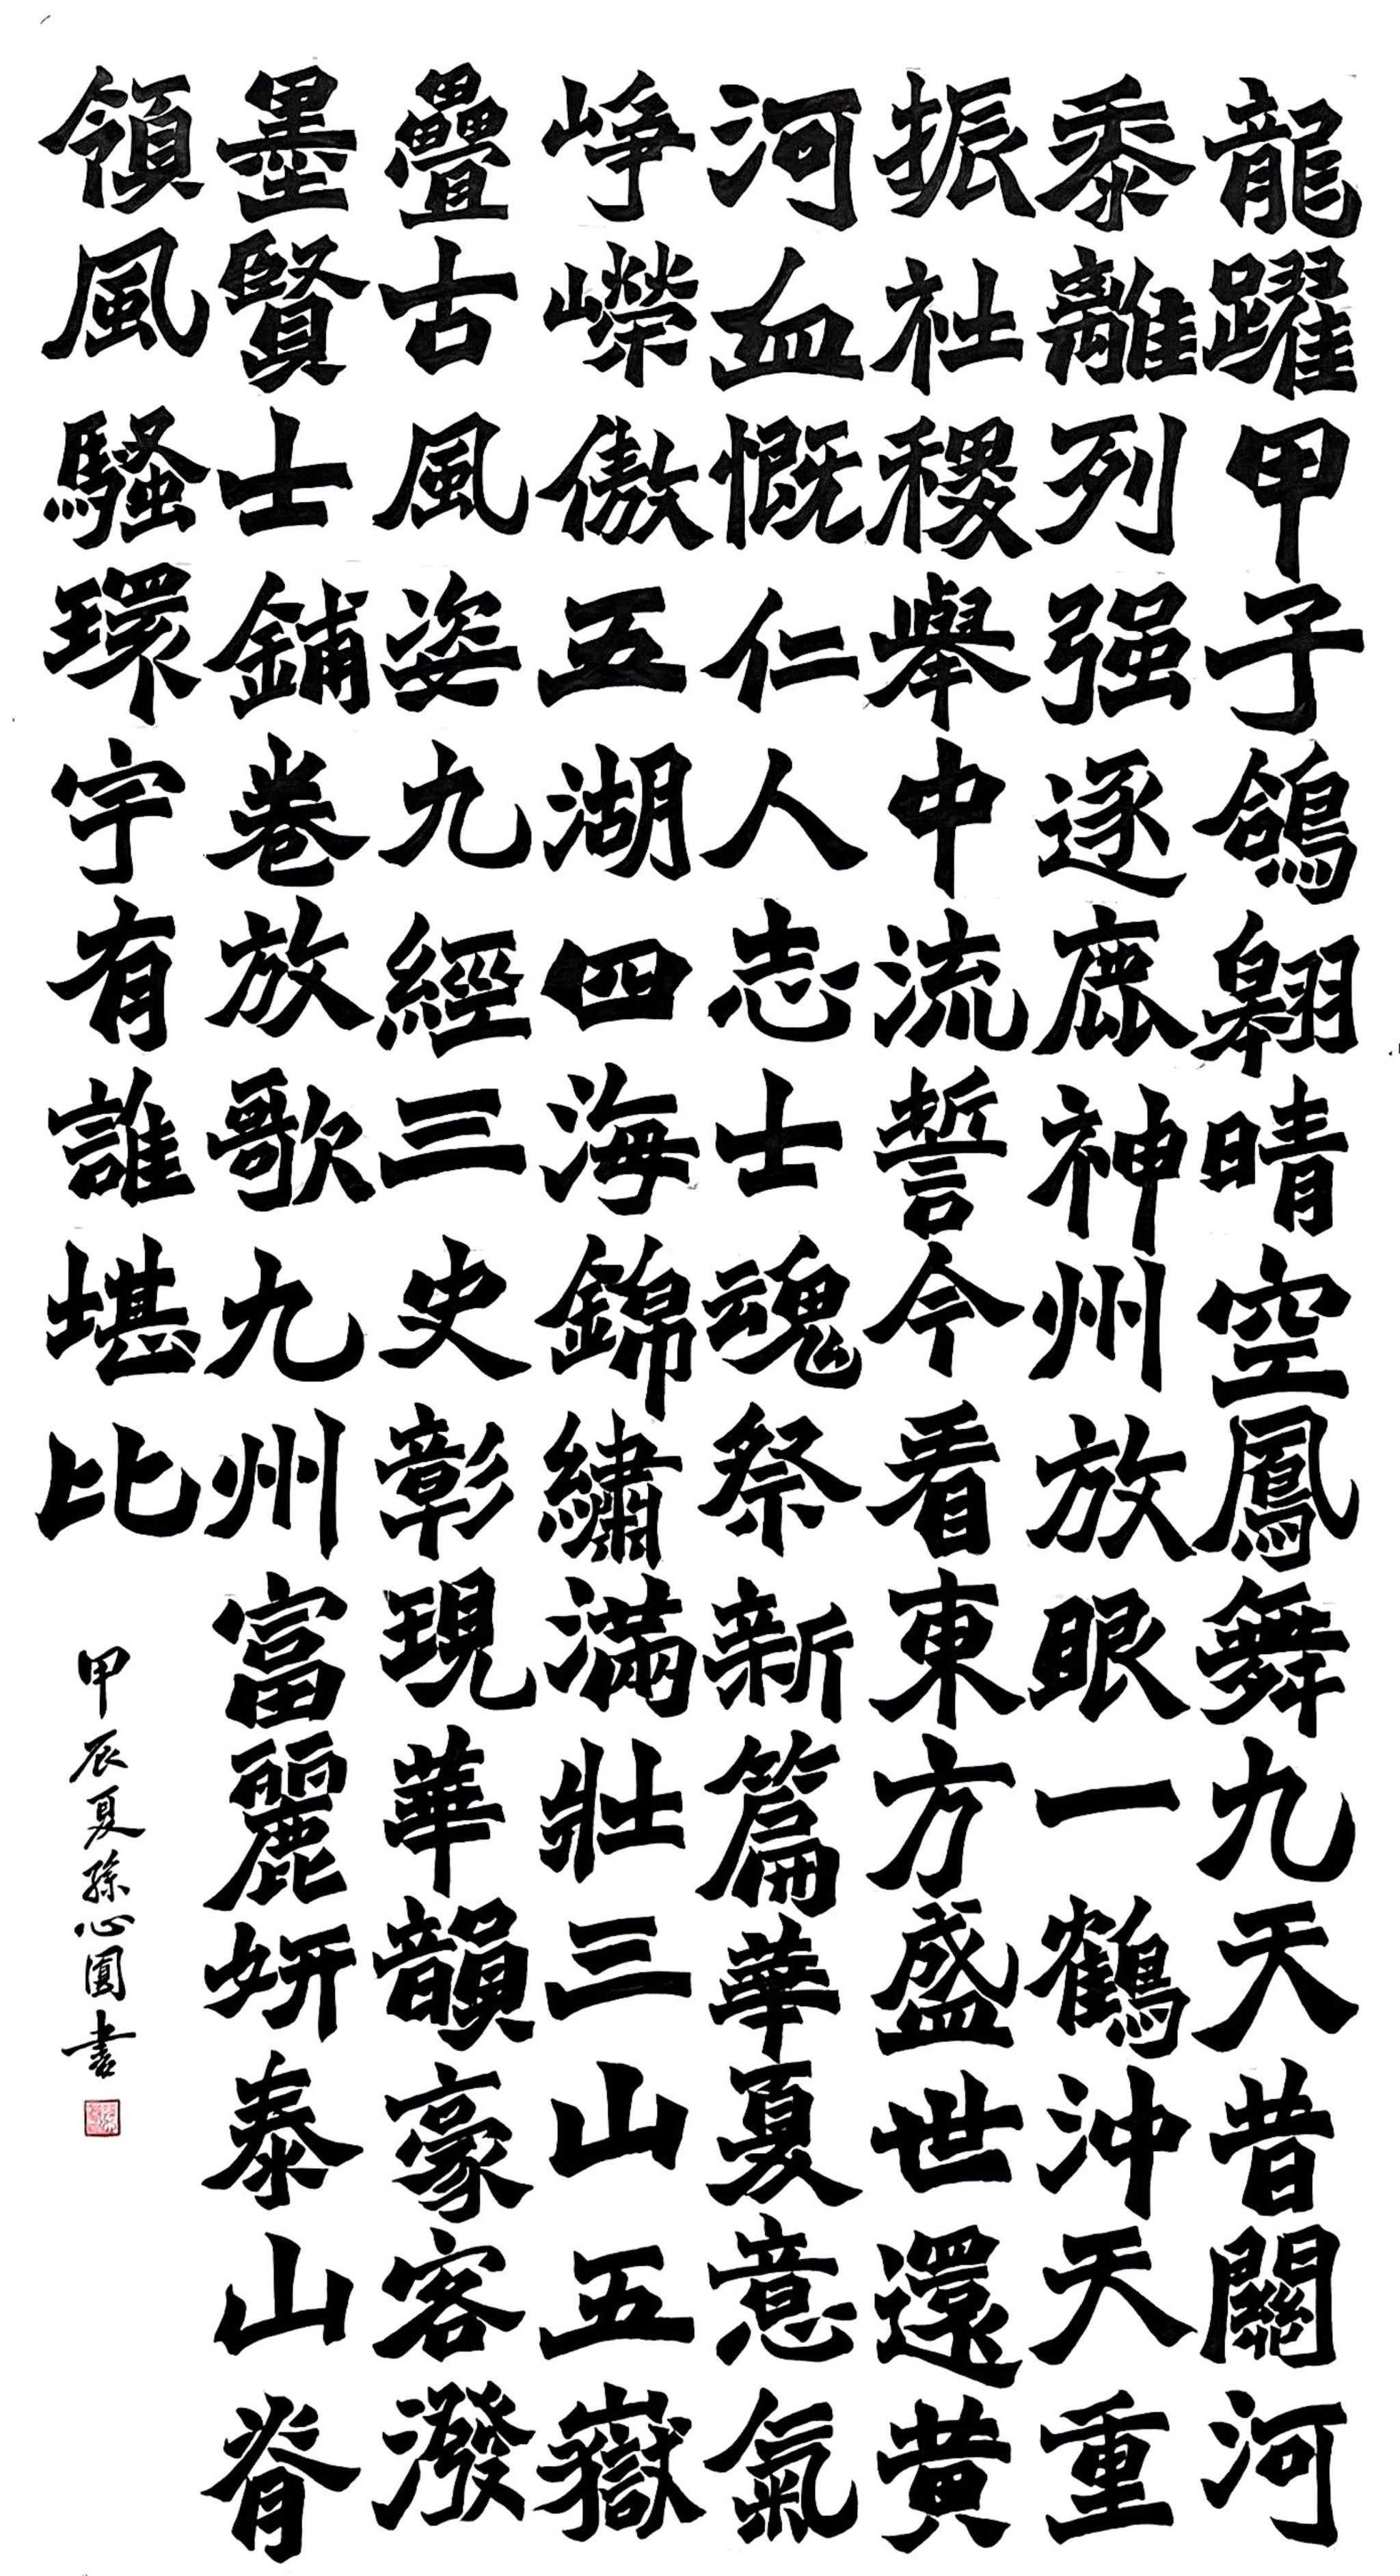 龍躍甲子鴿翱晴空鳳舞九天昔關河
黍離列强逐鹿神州放眼一鶴沖天重
振社稷舉中流誓今看東方盛世還黄
河血慨仁人志士魂祭新篇華夏意氣
崢嶸傲五湖四海錦繡滿壯三山五嶽
疊古風姿九經三史彰現華韻豪客潑
墨賢士鋪卷放歌九州富麗妍泰山脊
領風騷環宇有誰堪比
甲辰夏孫心圓書